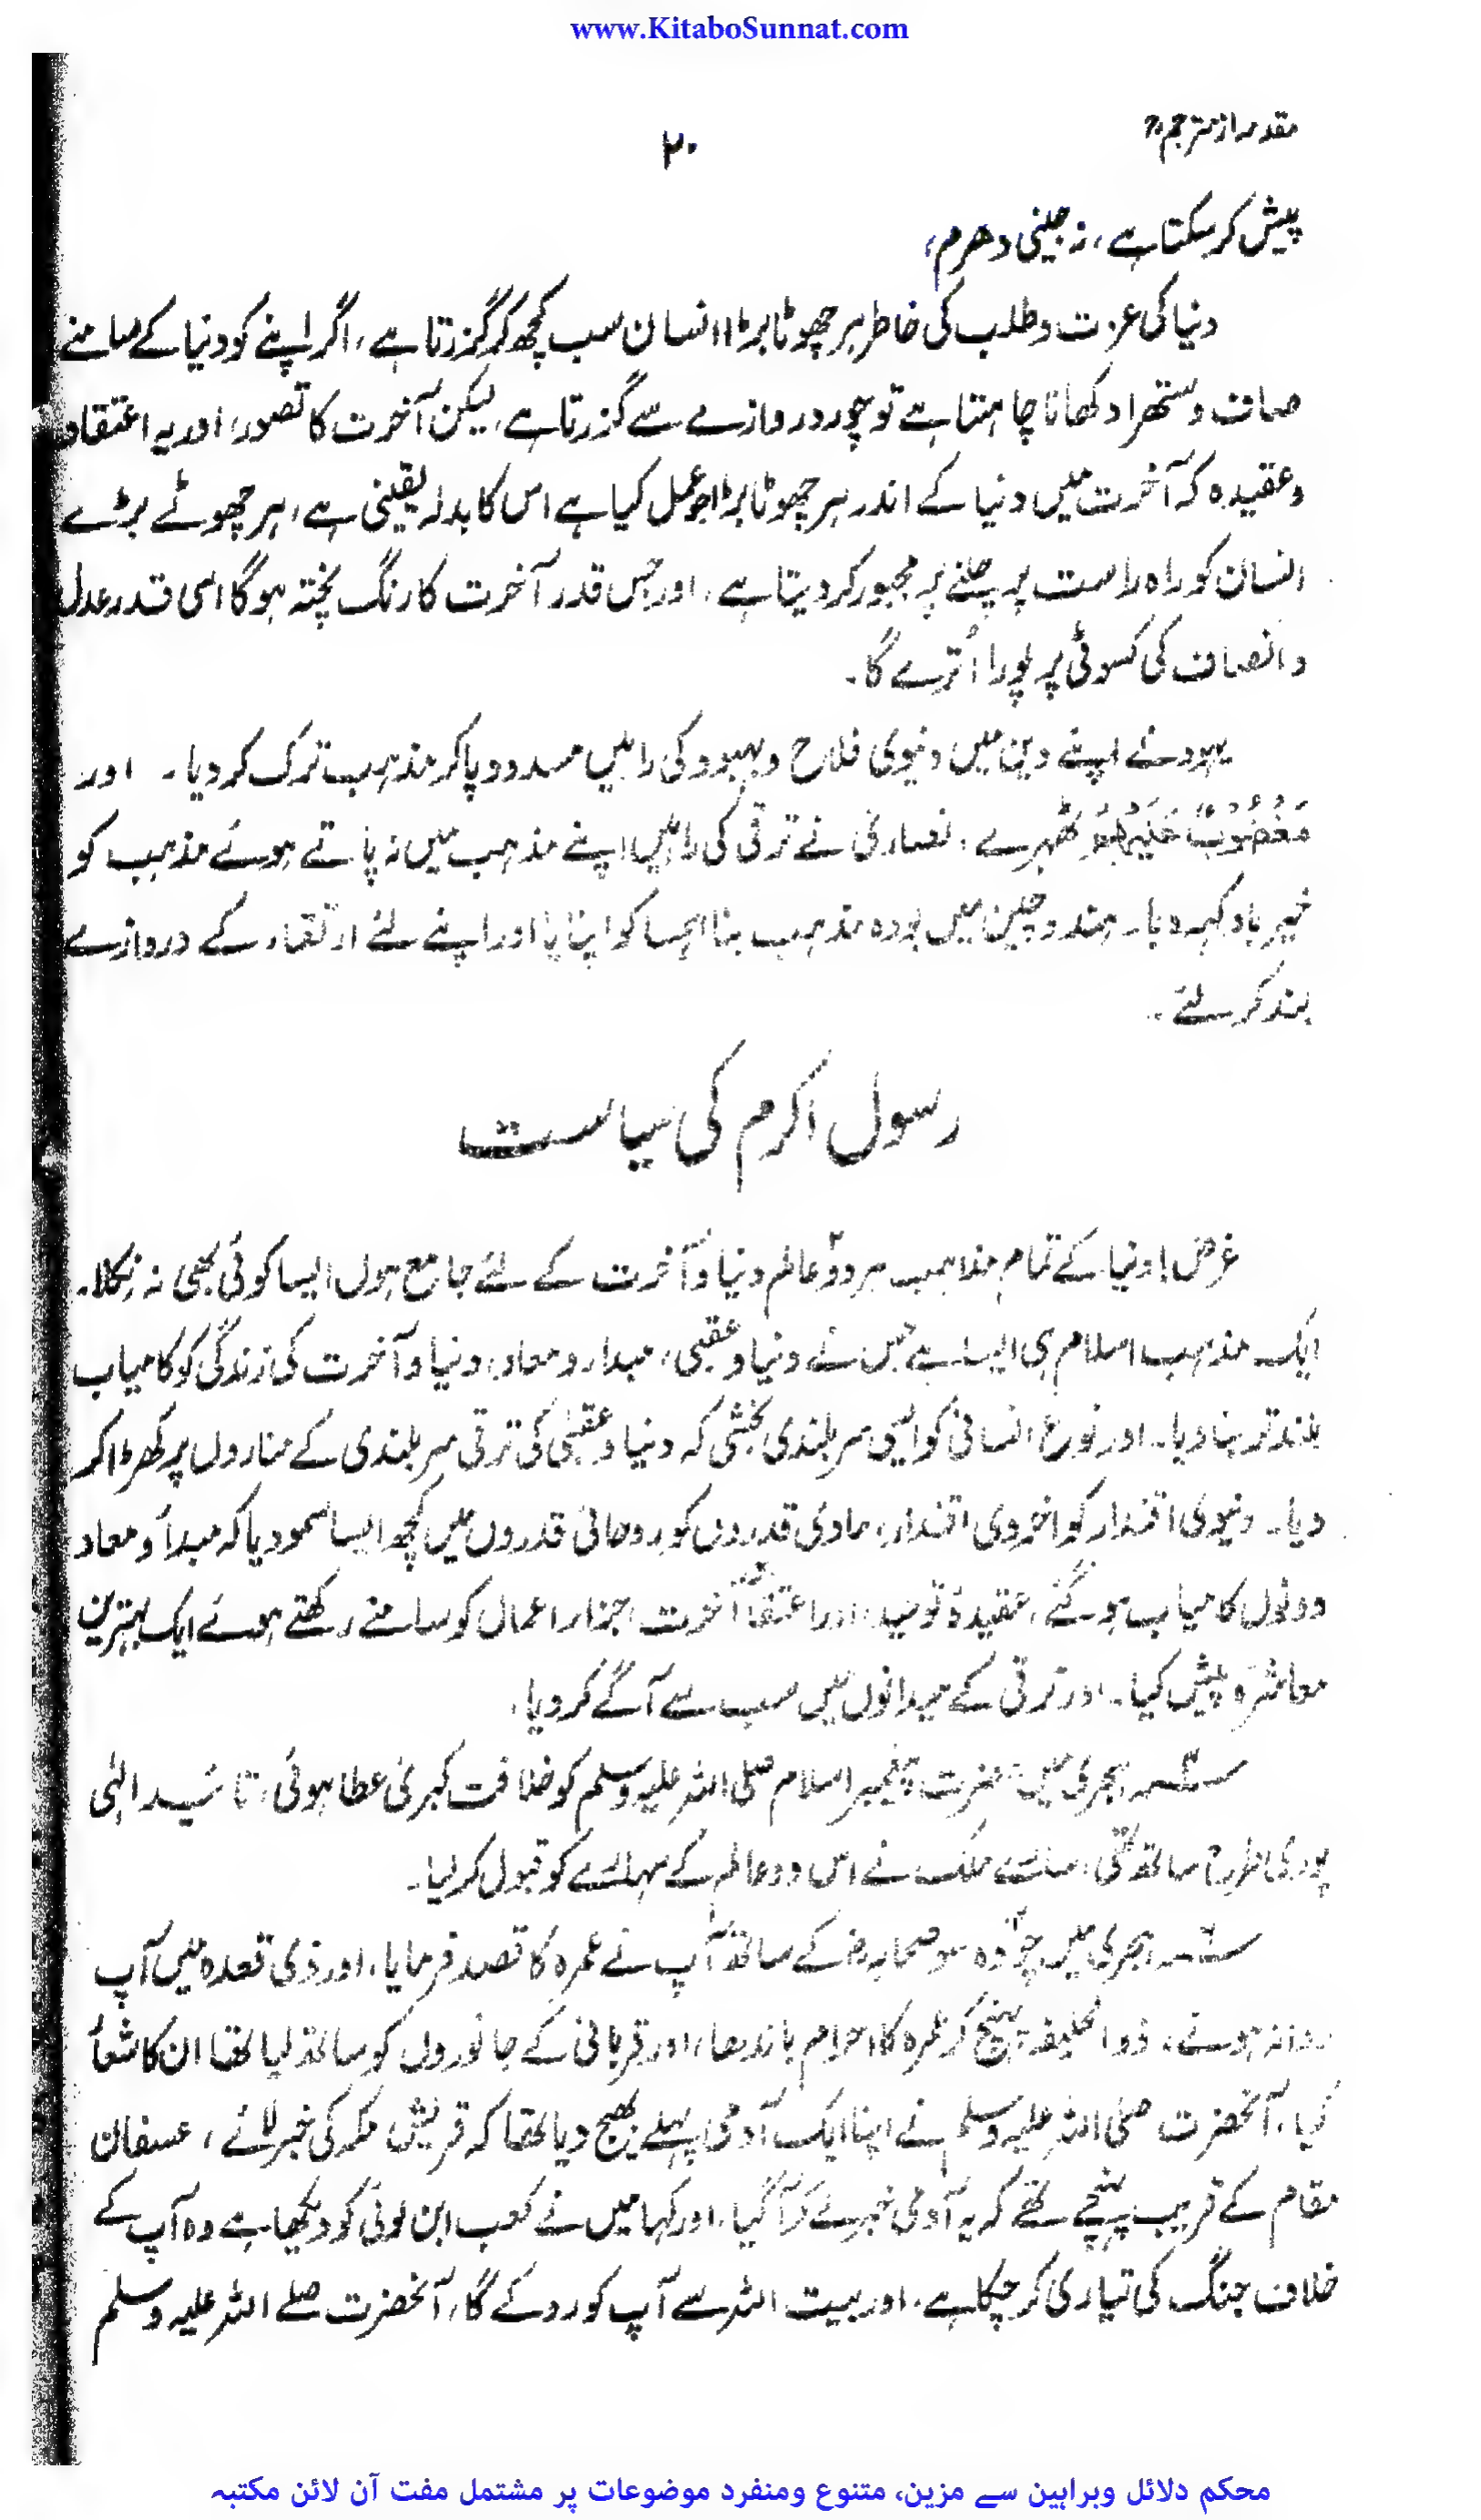 www.KitaboSunnat.com
مقدمہ از مترجم
۲۰
پیش کر سکتا ہے، نہ جینی دھرم،
دنیا کی عزت و طلب کی خاطر ہر چھوٹا بڑا انسان سب کچھ کر گزرتا ہے، اگر اپنے کو دنیا کے سامنے
صاف و ستھرا دکھانا چاہتا ہے تو چور دروازے سے گزرتا ہے، لیکن آخرت کا تصور، اور یہ اعتقاد
و عقیدہ کہ آخرت میں دنیا کے اندر ہر چھوٹا بڑا جو عمل کیا ہے اس کا بدلہ یقینی ہے، ہر چھوٹے بڑے
انسان کو راہ راست پر چلنے پر مجبور کر دیتا ہے، اور جس قدر آخرت کا رنگ پختہ ہوگا اسی قدر عدل
و انصاف کی کسوٹی پر پورا اُترے گا۔
یہود نے اپنے دین میں دنیوی فلاح و بہبود کی راہیں مسدود پا کر مذہب ترک کر دیا۔ اور
مَغْضُوْبٌ عَلَیْہِمْ ٹھہرے، نصاریٰ نے ترقی کی راہیں اپنے مذہب میں نہ پاتے ہوئے مذہب کو
خیر باد کہہ دیا۔ ہند و چین میں بودھ مذہب بنا اہنسا کو اپنایا اور اپنے لئے ارتقاء کے دروازے
بند کر لئے۔
رسول اکرم کی سیاست
غرض! دنیا کے تمام مذاہب ہر دو عالم دنیا و آخرت کے لئے جامع ہوں ایسا کوئی بھی نہ نکلا۔
ایک مذہب اسلام ہی ایسا ہے جس نے دنیا و عقبیٰ، مبداء و معاد، دنیا و آخرت کی زندگی کو کامیاب
بلند تر بنا دیا۔ اور نوع انسانی کو ایسی سربلندی بخشی کہ دنیا و عقبیٰ کی ترقی سربلندی کے مناروں پر کھڑا کر
دیا۔ دنیوی اقتدار کو اخروی اقتدار، مادی قدروں کو روحانی قدروں میں کچھ ایسا سمو دیا کہ مبدأ و معاد
دونوں کامیاب ہو گئے، عقیدۂ توحید، اور اعتقاد آخرت، جزاء اعمال کو سامنے رکھتے ہوئے ایک بہترین
معاشرہ پیش کیا۔ اور ترقی کے میدانوں میں سب سے آگے کر دیا،
ہجری میں حضرت پیغمبر اسلام صلی اللہ علیہ وسلم کو خلافت کبریٰ عطا ہوئی، تائید الٰہی
پوری طرح ساتھ تھی، سارے ملک نے اس دو عالم کے سہارے کو قبول کر لیا۔
ہجری میں چودہ سو صحابہؓ کے ساتھ آپ نے عمرہ کا قصد فرمایا، اور ذی قعدہ میں آپ
روانہ ہوئے، ذوالحلیفہ پہنچ کر عمرہ کا احرام باندھا، اور قربانی کے جانوروں کو ساتھ لیا تھا ان کا شعار
کیا، آنحضرت صلی اللہ علیہ وسلم نے اپنا ایک آدمی پہلے بھیج دیا تھا کہ قریش مکہ کی خبر لائے، عسفان
مقام کے قریب پہنچے تھے کہ یہ آدمی خبر لے کر آ گیا، اور کہا میں نے کعب ابن لوئی کو دیکھا ہے وہ آپ کے
خلاف جنگ کی تیاری کر چکا ہے، اور بیت اللہ سے آپ کو روکے گا، آنحضرت صلے اللہ علیہ وسلم
محکم دلائل وبراہین سے مزین، متنوع ومنفرد موضوعات پر مشتمل مفت آن لائن مکتبہ